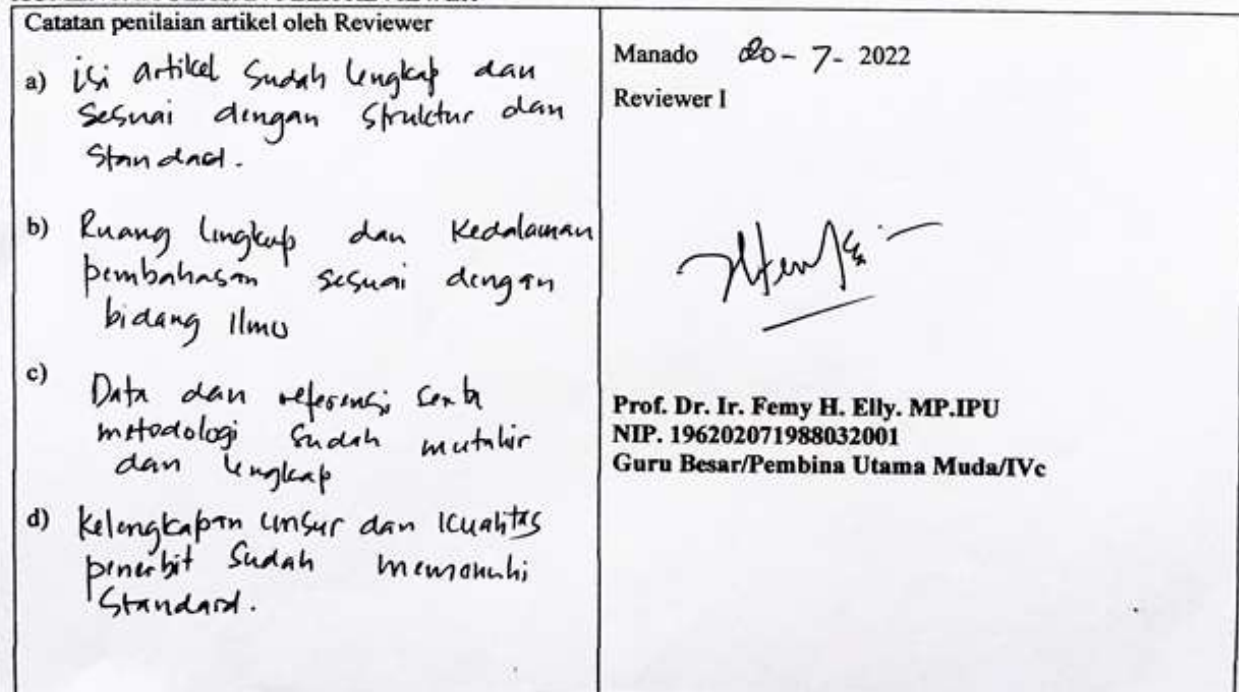 Catatan penilaian artikel oleh Reviewer
a) isi artikel sudah lengkap dan
sesuai dengan struktur dan
Standard.
b) Ruang lingkup dan Kedalaman
pembahasan sesuai dengan
bidang Ilmu
c) Data dan referensi serta
metodologi sudah mutahir
dan lengkap
d) Kelengkapan unsur dan kualitas
penerbit sudah memenuhi
Standard.
Manado 20-7-2022
Reviewer I
Prof. Dr. Ir. Femy H. Elly. MP.IPU
NIP. 196202071988032001
Guru Besar/Pembina Utama Muda/IVc